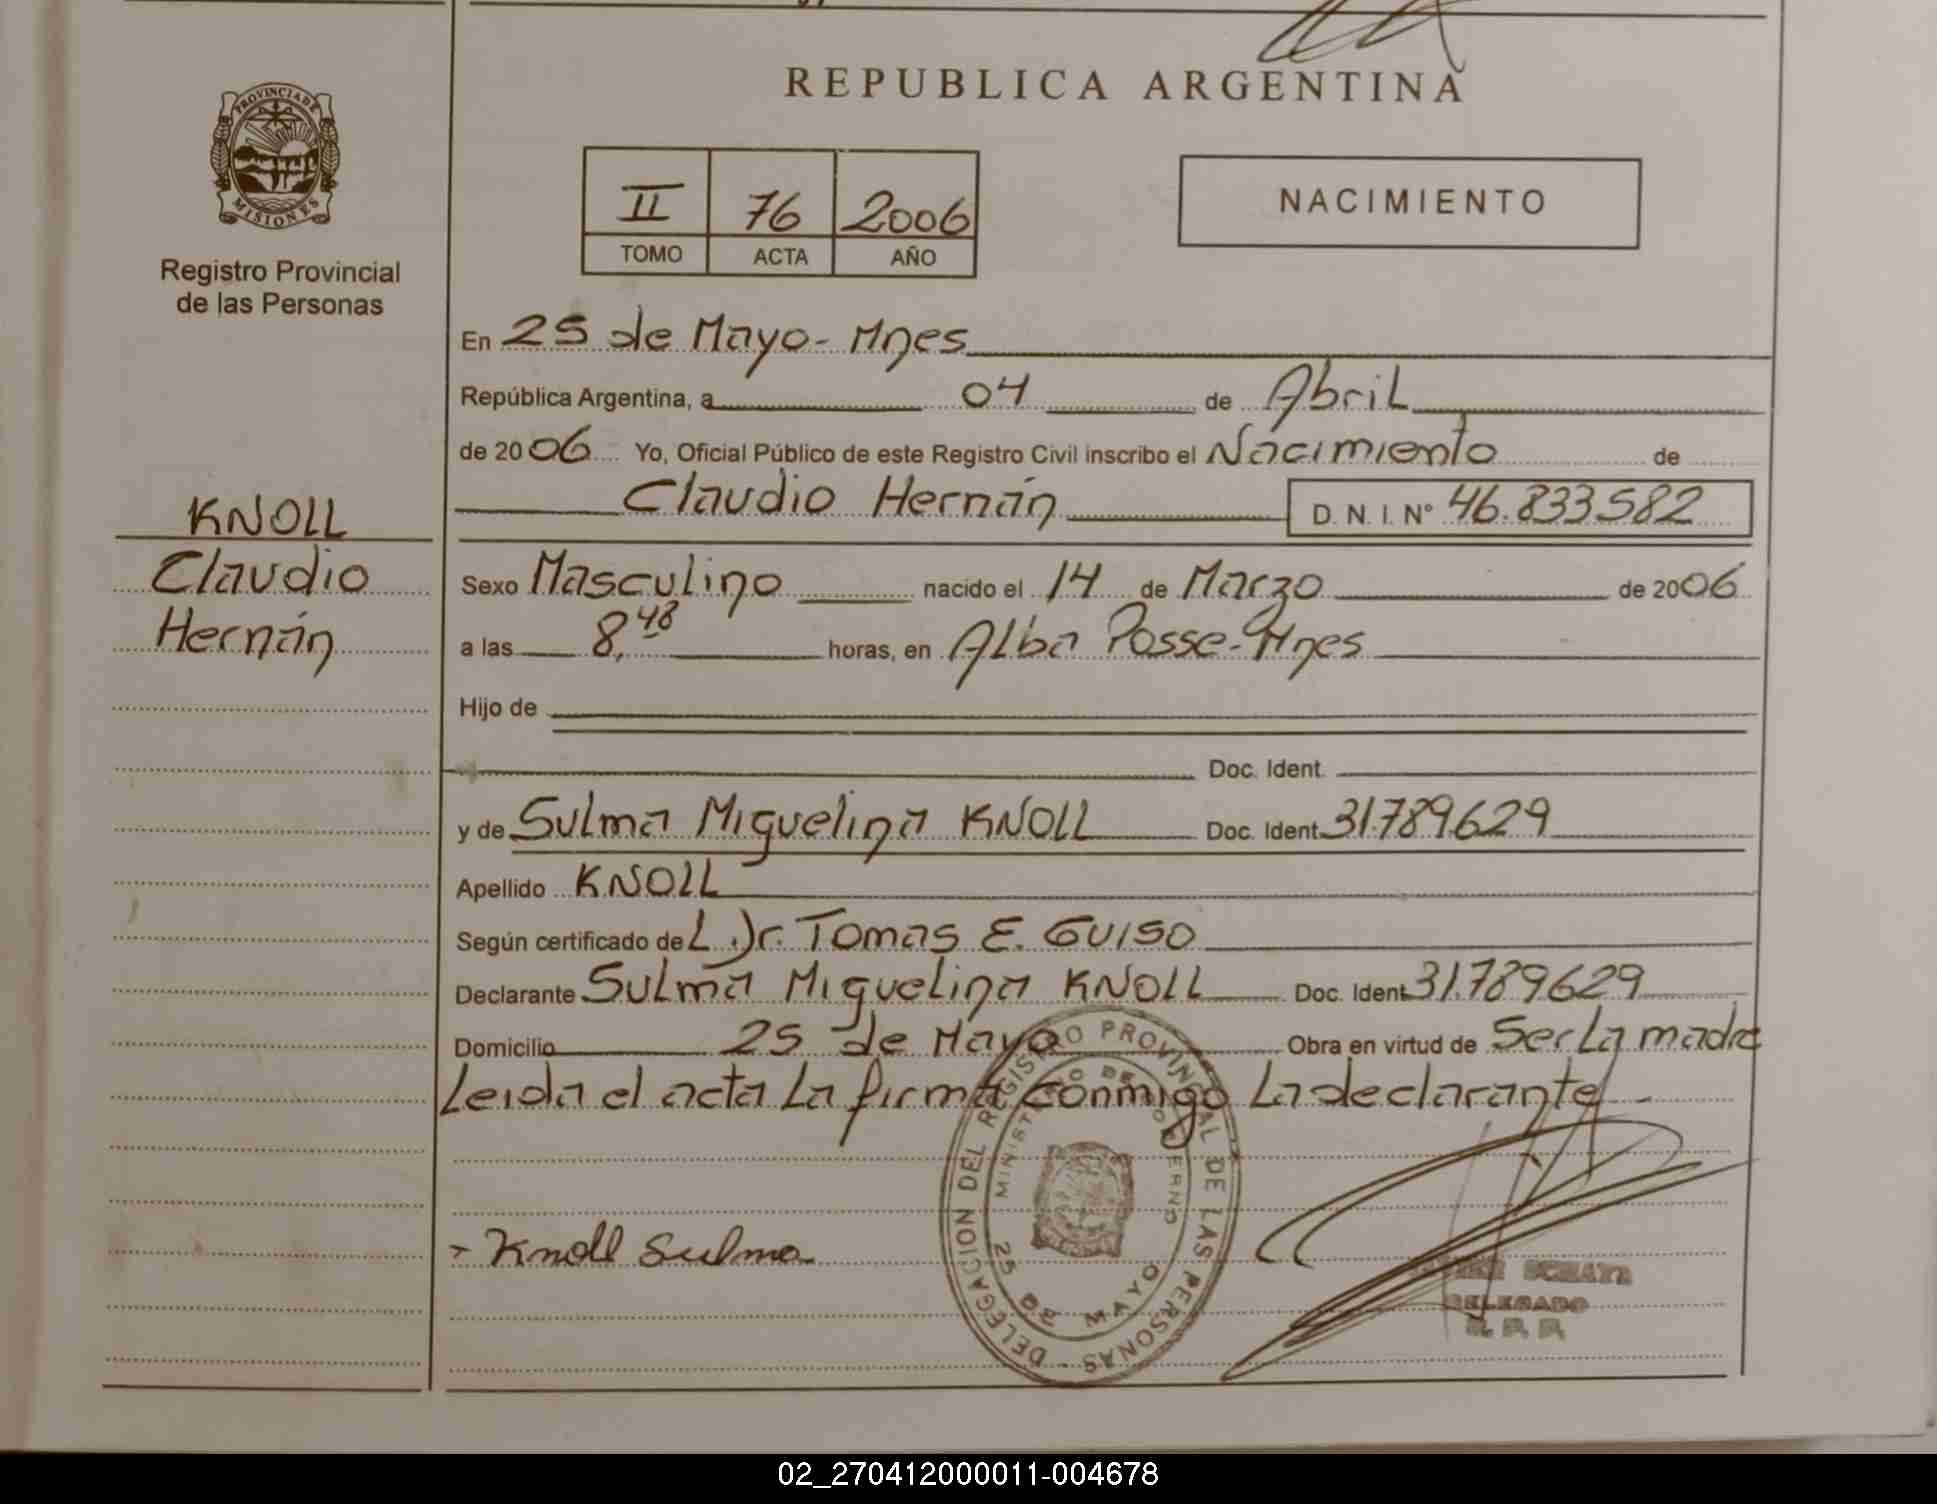 REPUBLICA ARGENTINA
PROVINCIA DE
MISIONES
Registro Provincial
de las Personas
II 76 2006
TOMO ACTA AÑO
NACIMIENTO
KNOLL
Claudio
Hernán
En 25 de Mayo- Mnes
República Argentina, a 04 de Abril
de 2006 Yo, Oficial Público de este Registro Civil inscribo el Nacimiento de
Claudio Hernán D. N. I. N° 46.833582
Sexo Masculino nacido el 14 de Marzo de 2006
a las 8,48 horas, en Alba Posse-Mnes
Hijo de
Doc. Ident.
y de Sulma Miguelina KNOLL Doc. Ident. 31.789.629
Apellido KNOLL
Según certificado de L Dr. Tomas E. GUISO
Declarante Sulma Miguelina KNOLL Doc. Ident. 31.789629
Domicilio 25 de Mayo Obra en virtud de Ser La madre
Leida el acta La firma conmigo La declarante -
Knoll Sulma
DELEGACION DEL REGISTRO PROVINCIAL DE LAS PERSONAS -
MINISTERIO DE GOBIERNO
25 DE MAYO
DELEGADO
R. P. P.
02_270412000011-004678